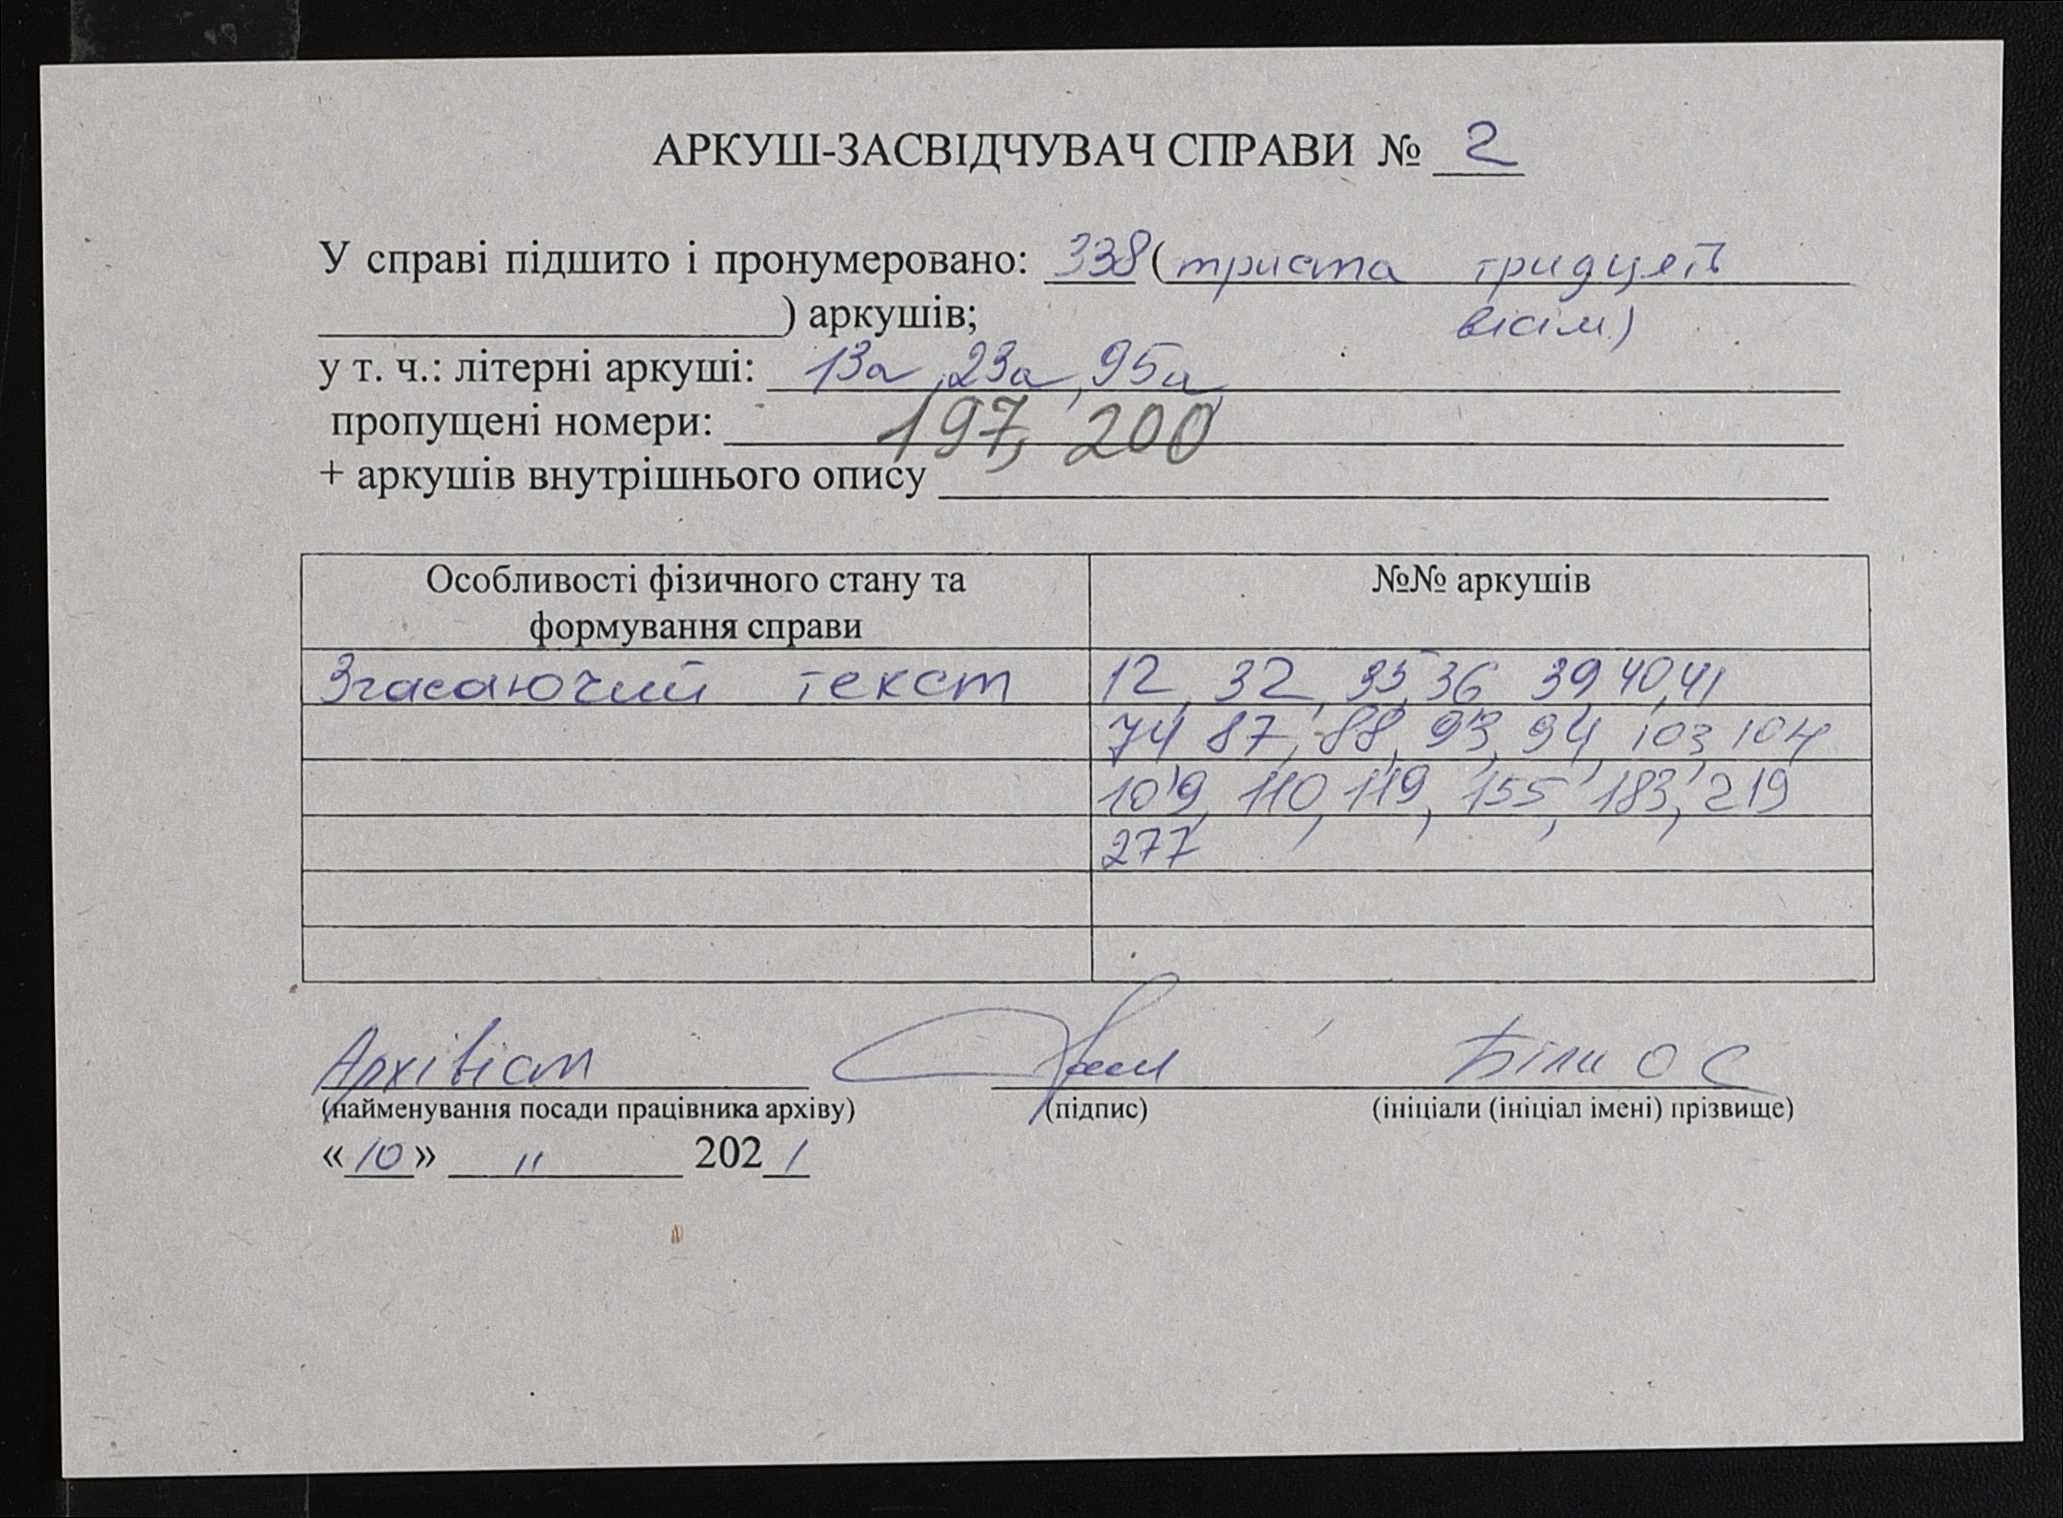 АРКУШ-ЗАСВІДЧУВАЧ СПРАВИ № 2
У справі підшито і пронумеровано: 338 (триста тридцять
) аркушів; вісім)
у т. ч.: літерні аркуші: 13а, 23а, 95а
пропущені номери: 197, 200
+ аркушів внутрішнього опису
Особливості фізичного стану та
формування справи
№№ аркушів
Згасаючий текст
12, 32, 35, 36 39, 40, 41
74 87, 88, 93, 94, 103, 104
109, 110, 119, 155, 183, 219
277
Архівіст Біли О С
(найменування посади працівника архіву) (підпис) (ініціали (ініціал імені) прізвище)
«10» 11 2021